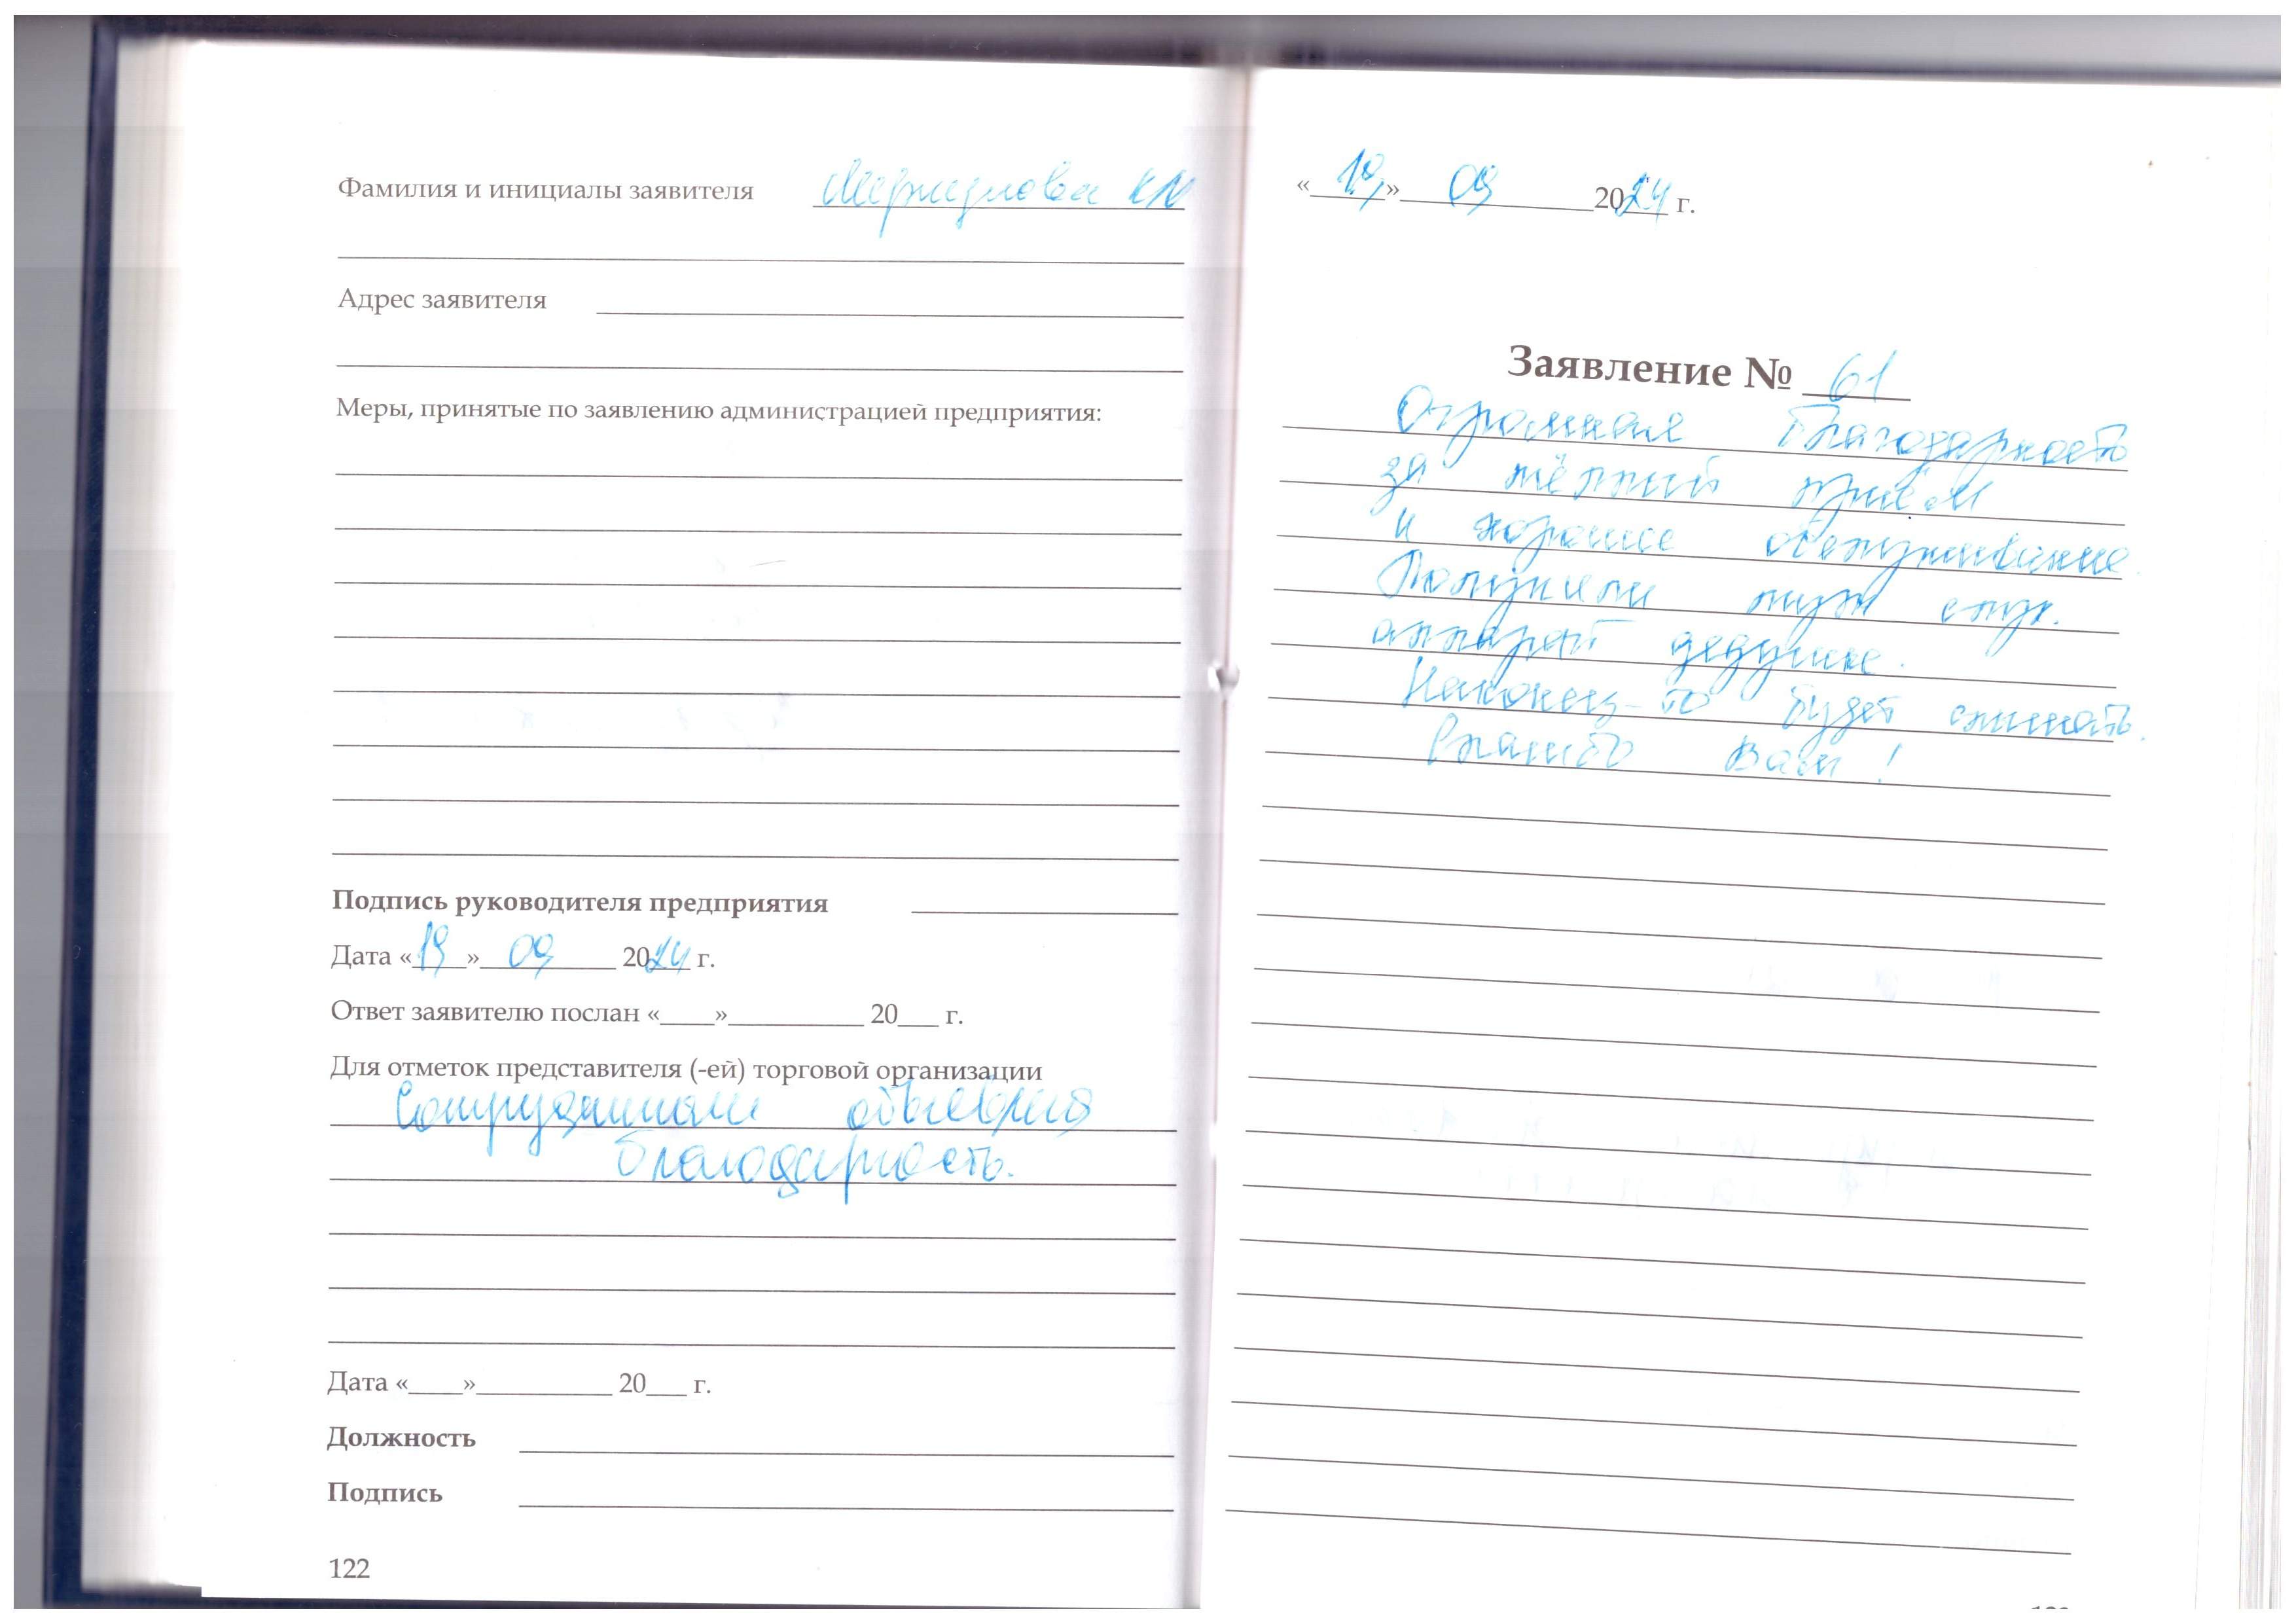 Фамилия и инициалы заявителя
Адрес заявителя
Меры, принятые по заявлению администрацией предприятия:
Подпись руководителя предприятия
Дата «19» 09 2024 г.
Ответ заявителю послан «____»__________ 20___ г.
Для отметок представителя (-ей) торговой организации
Сотрудникам объявлена
благодарность.
Дата «____»__________ 20___ г.
Должность
Подпись
122
«19» 09 2024 г.
Заявление № 61
Огромная благодарность
за тёплый приём
и хорошее обслуживание.
Получили слух.
аппарат дедушке.
Наконец-то будет слышать.
Спасибо Вам!